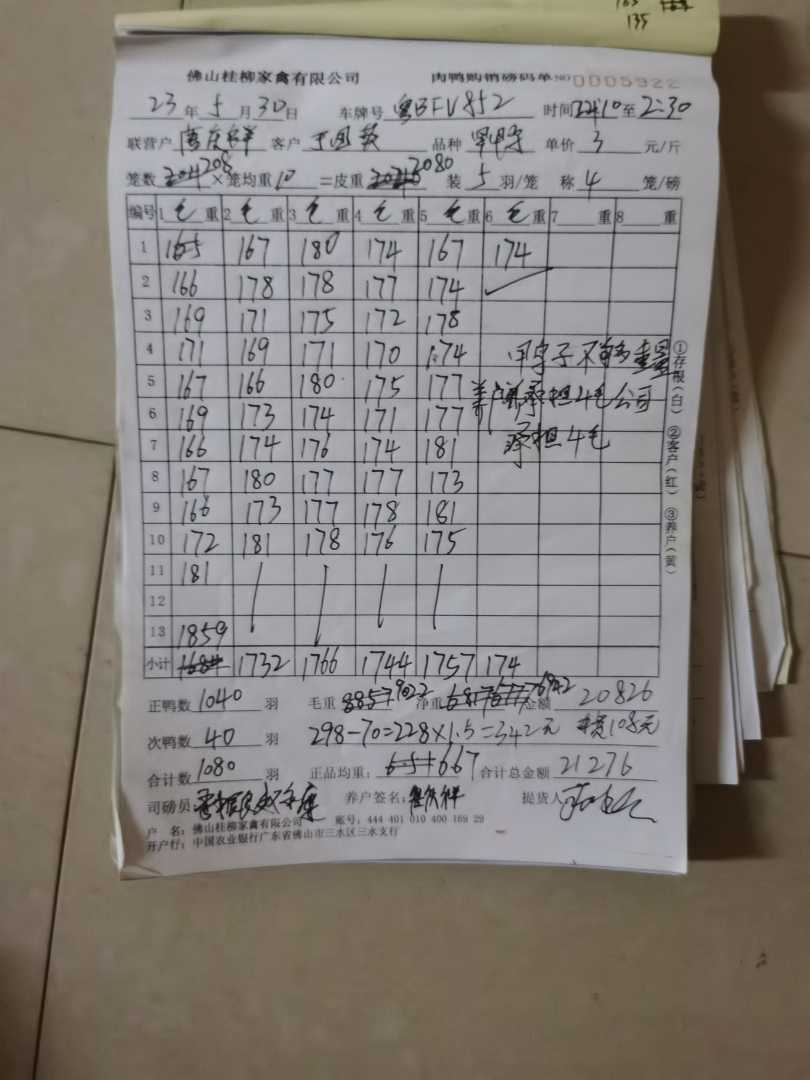 135
佛山桂柳家禽有限公司 肉鸭购销磅码单 NO 0005922
23年5月30日 车牌号 粤BFV852 时间 至2:30
联营户 客户 品种 单价 3 元/斤
笼数 208 × 笼均重 10 = 皮重 2080 装 5 羽/笼 称 4 笼/磅
编号 1 毛 重 2 毛 重 3 毛 重 4 毛 重 5 毛 重 6 毛 重 7 重 8 重
1 165 167 180 174 167 174
2 166 178 178 177 174
3 169 171 175 172 178
4 171 169 171 170 174 不够重量
5 167 166 180 175 177 养户承担4毛公司
6 169 173 174 171 177
7 166 174 176 174 181 承担4毛
8 167 180 177 177 173
9 166 173 177 178 181
10 172 181 178 176 175
11 181
12
13 1859
小计 1684 1732 1766 1744 1757 174
①存根(白) ②客户(红) ③养户(黄)
正鸭数 1040 羽 毛重 8857 9022 净重 6942 金额 20826
次鸭数 40 羽 298-70=228×1.5=342元 108元
合计数 1080 羽 正品均重: 667 合计总金额 21276
司磅员 养户签名: 提货人
户 名: 佛山桂柳家禽有限公司 账号: 444 401 010 400 169 29
开户行: 中国农业银行广东省佛山市三水区三水支行